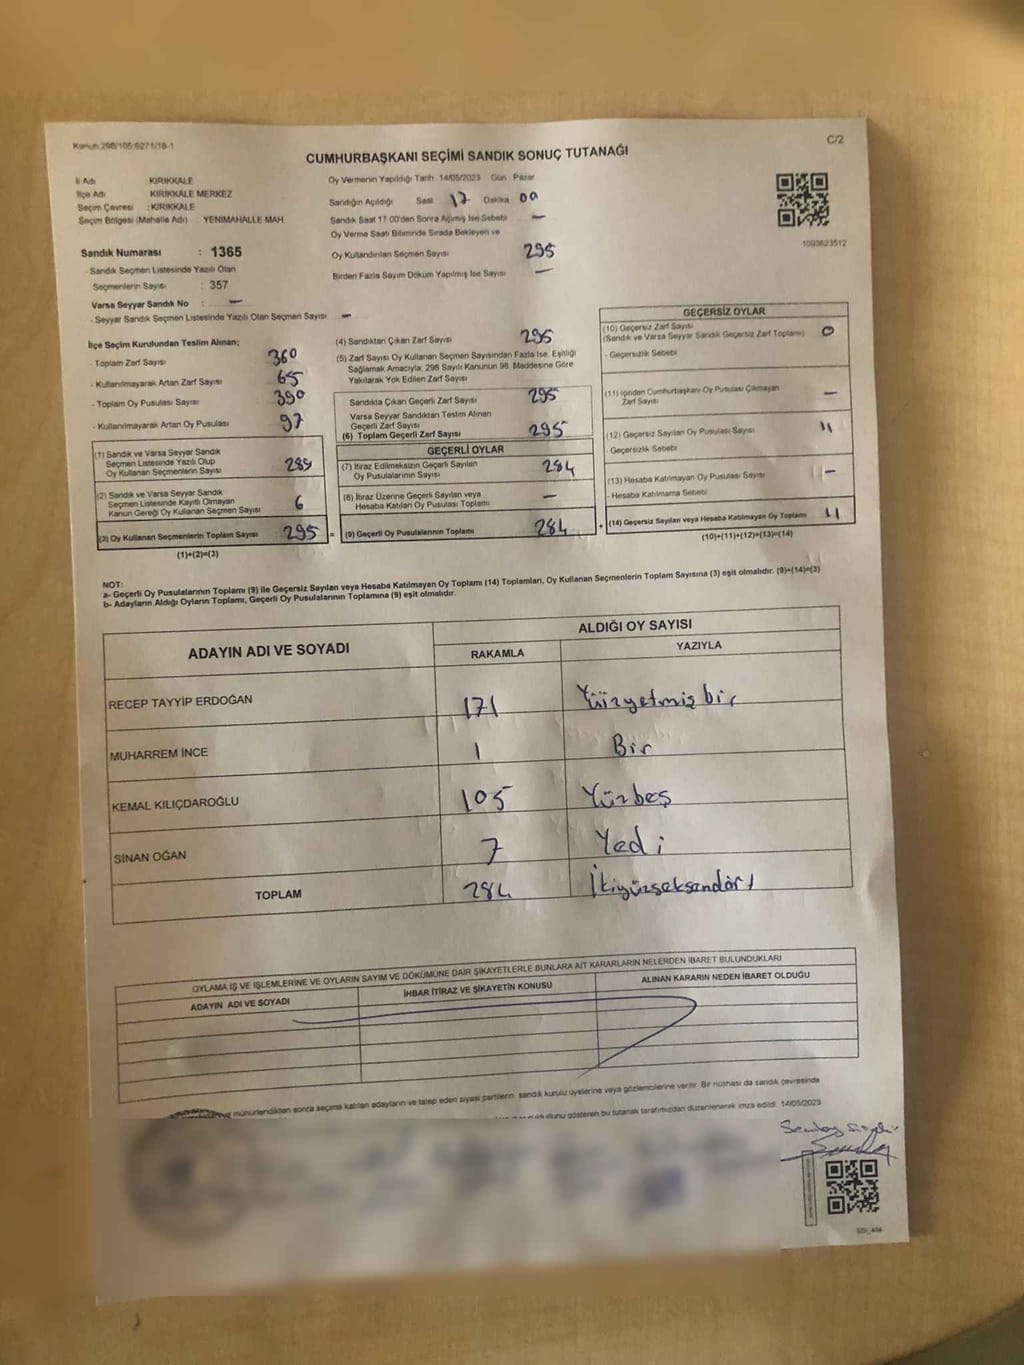 Kanun:298/105;6271/18-1
C/2
CUMHURBAŞKANI SEÇİMİ SANDIK SONUÇ TUTANAĞI
İl Adı KIRIKKALE
İlçe Adı KIRIKKALE MERKEZ
Seçim Çevresi : KIRIKKALE
Seçim Bölgesi (Mahalle Adı) : YENIMAHALLE MAH.
Oy Vermenin Yapıldığı Tarih 14/05/2023 Gün : Pazar
Sandığın Açıldığı Saat 17 Dakika 00
Sandık Saat 17.00'den Sonra Açılmış İse Sebebi –
Oy Verme Saati Bitiminde Sırada Bekleyen ve
Oy Kullandırılan Seçmen Sayısı 295
Birden Fazla Sayım Döküm Yapılmış İse Sayısı –
1093623512
Sandık Numarası : 1365
- Sandık Seçmen Listesinde Yazılı Olan
Seçmenlerin Sayısı : 357
Varsa Seyyar Sandık No : –
- Seyyar Sandık Seçmen Listesinde Yazılı Olan Seçmen Sayısı –
İlçe Seçim Kurulundan Teslim Alınan;
- Toplam Zarf Sayısı 360
- Kullanılmayarak Artan Zarf Sayısı 65
- Toplam Oy Pusulası Sayısı 390
- Kullanılmayarak Artan Oy Pusulası 97
(1) Sandık ve Varsa Seyyar Sandık
Seçmen Listesinde Yazılı Olup
Oy Kullanan Seçmenlerin Sayısı 289
(2) Sandık ve Varsa Seyyar Sandık
Seçmen Listesinde Kayıtlı Olmayan
Kanun Gereği Oy Kullanan Seçmen Sayısı 6
(3) Oy Kullanan Seçmenlerin Toplam Sayısı 295
(1)+(2)=(3)
(4) Sandıktan Çıkan Zarf Sayısı 295
(5) Zarf Sayısı Oy Kullanan Seçmen Sayısından Fazla İse, Eşitliği
Sağlamak Amacıyla, 298 Sayılı Kanunun 98. Maddesine Göre
Yakılarak Yok Edilen Zarf Sayısı
Sandıkta Çıkan Geçerli Zarf Sayısı 295
Varsa Seyyar Sandıktan Teslim Alınan
Geçerli Zarf Sayısı
(6) Toplam Geçerli Zarf Sayısı 295
GEÇERLİ OYLAR
(7) İtiraz Edilmeksizin Geçerli Sayılan
Oy Pusulalarının Sayısı 284
(8) İtiraz Üzerine Geçerli Sayılan veya
Hesaba Katılan Oy Pusulası Toplamı –
= (9) Geçerli Oy Pusulalarının Toplamı 284
GEÇERSİZ OYLAR
(10) Geçersiz Zarf Sayısı
(Sandık ve Varsa Seyyar Sandık Geçersiz Zarf Toplamı) 0
- Geçersizlik Sebebi
(11) İçinden Cumhurbaşkanı Oy Pusulası Çıkmayan
Zarf Sayısı –
(12) Geçersiz Sayılan Oy Pusulası Sayısı 11
- Geçersizlik Sebebi
(13) Hesaba Katılmayan Oy Pusulası Sayısı –
- Hesaba Katılmama Sebebi
+ (14) Geçersiz Sayılan veya Hesaba Katılmayan Oy Toplamı 11
(10)+(11)+(12)+(13)=(14)
NOT:
a- Geçerli Oy Pusulalarının Toplamı (9) ile Geçersiz Sayılan veya Hesaba Katılmayan Oy Toplamı (14) Toplamları, Oy Kullanan Seçmenlerin Toplam Sayısına (3) eşit olmalıdır. (9)+(14)=(3)
b- Adayların Aldığı Oyların Toplamı, Geçerli Oy Pusulalarının Toplamına (9) eşit olmalıdır.
ADAYIN ADI VE SOYADI ALDIĞI OY SAYISI
RAKAMLA YAZIYLA
RECEP TAYYİP ERDOĞAN 171 Yüzyetmişbir
MUHARREM İNCE 1 Bir
KEMAL KILIÇDAROĞLU 105 Yüzbeş
SİNAN OĞAN 7 Yedi
TOPLAM 284 İkiyüzseksendört
OYLAMA İŞ VE İŞLEMLERİNE VE OYLARIN SAYIM VE DÖKÜMÜNE DAİR ŞİKAYETLERLE BUNLARA AİT KARARLARIN NELERDEN İBARET BULUNDUKLARI
ADAYIN ADI VE SOYADI İHBAR İTİRAZ VE ŞİKAYETİN KONUSU ALINAN KARARIN NEDEN İBARET OLDUĞU
mühürlendikten sonra seçime katılan adayların ve talep eden siyasi partilerin sandık kurulu üyelerine veya gözlemcilerine verilir. Bir nüshası da sandık çevresinde
gösteren bu tutanak tarafımızdan düzenlenerek imza edildi. 14/05/2023